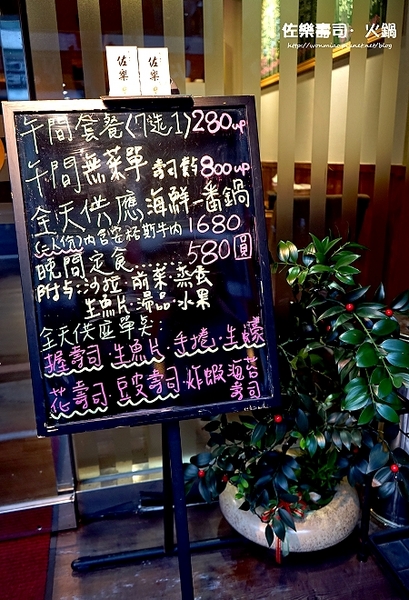 佐樂壽司·火鍋
佐樂 佐樂
午間套餐(7選1)280up
午間無菜單 壽司套餐800up
全天供應海鮮一番鍋
(2人份)內含安格斯牛肉1680
晚間定食……580圓
附与:沙拉·前菜·蒸蛋
生魚片·湯品·水果
全天供應單美:
握壽司·生魚片·手捲·生蠔
花壽司·豆皮壽司·炸蝦海苔壽司